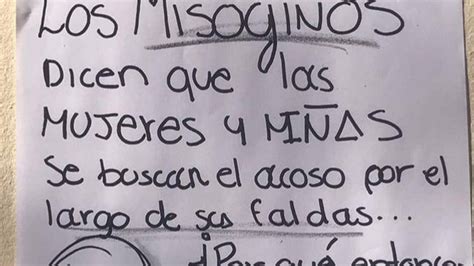 LOS MISOGINOS
DICEN QUE LAS
MUJERES Y NIÑAS
Se buscan el acoso por el
largo de sus faldas...
¿Por qué entonces